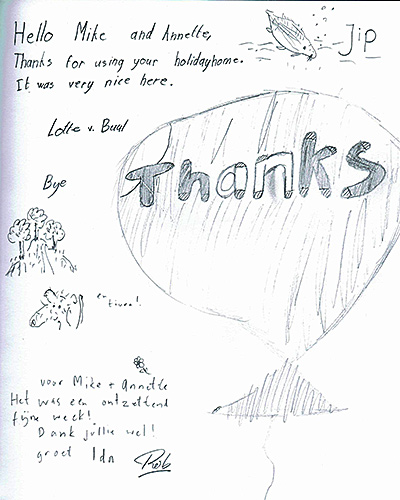 Hello Mike and Annette,
Jip
Thanks for using your holidayhome.
It was very nice here.
Lotte v. Buul
Thanks
Bye
voor Mike + Annette
Het was een ontzettend
fijne week!
Dank jullie wel!
groet Ida Rob